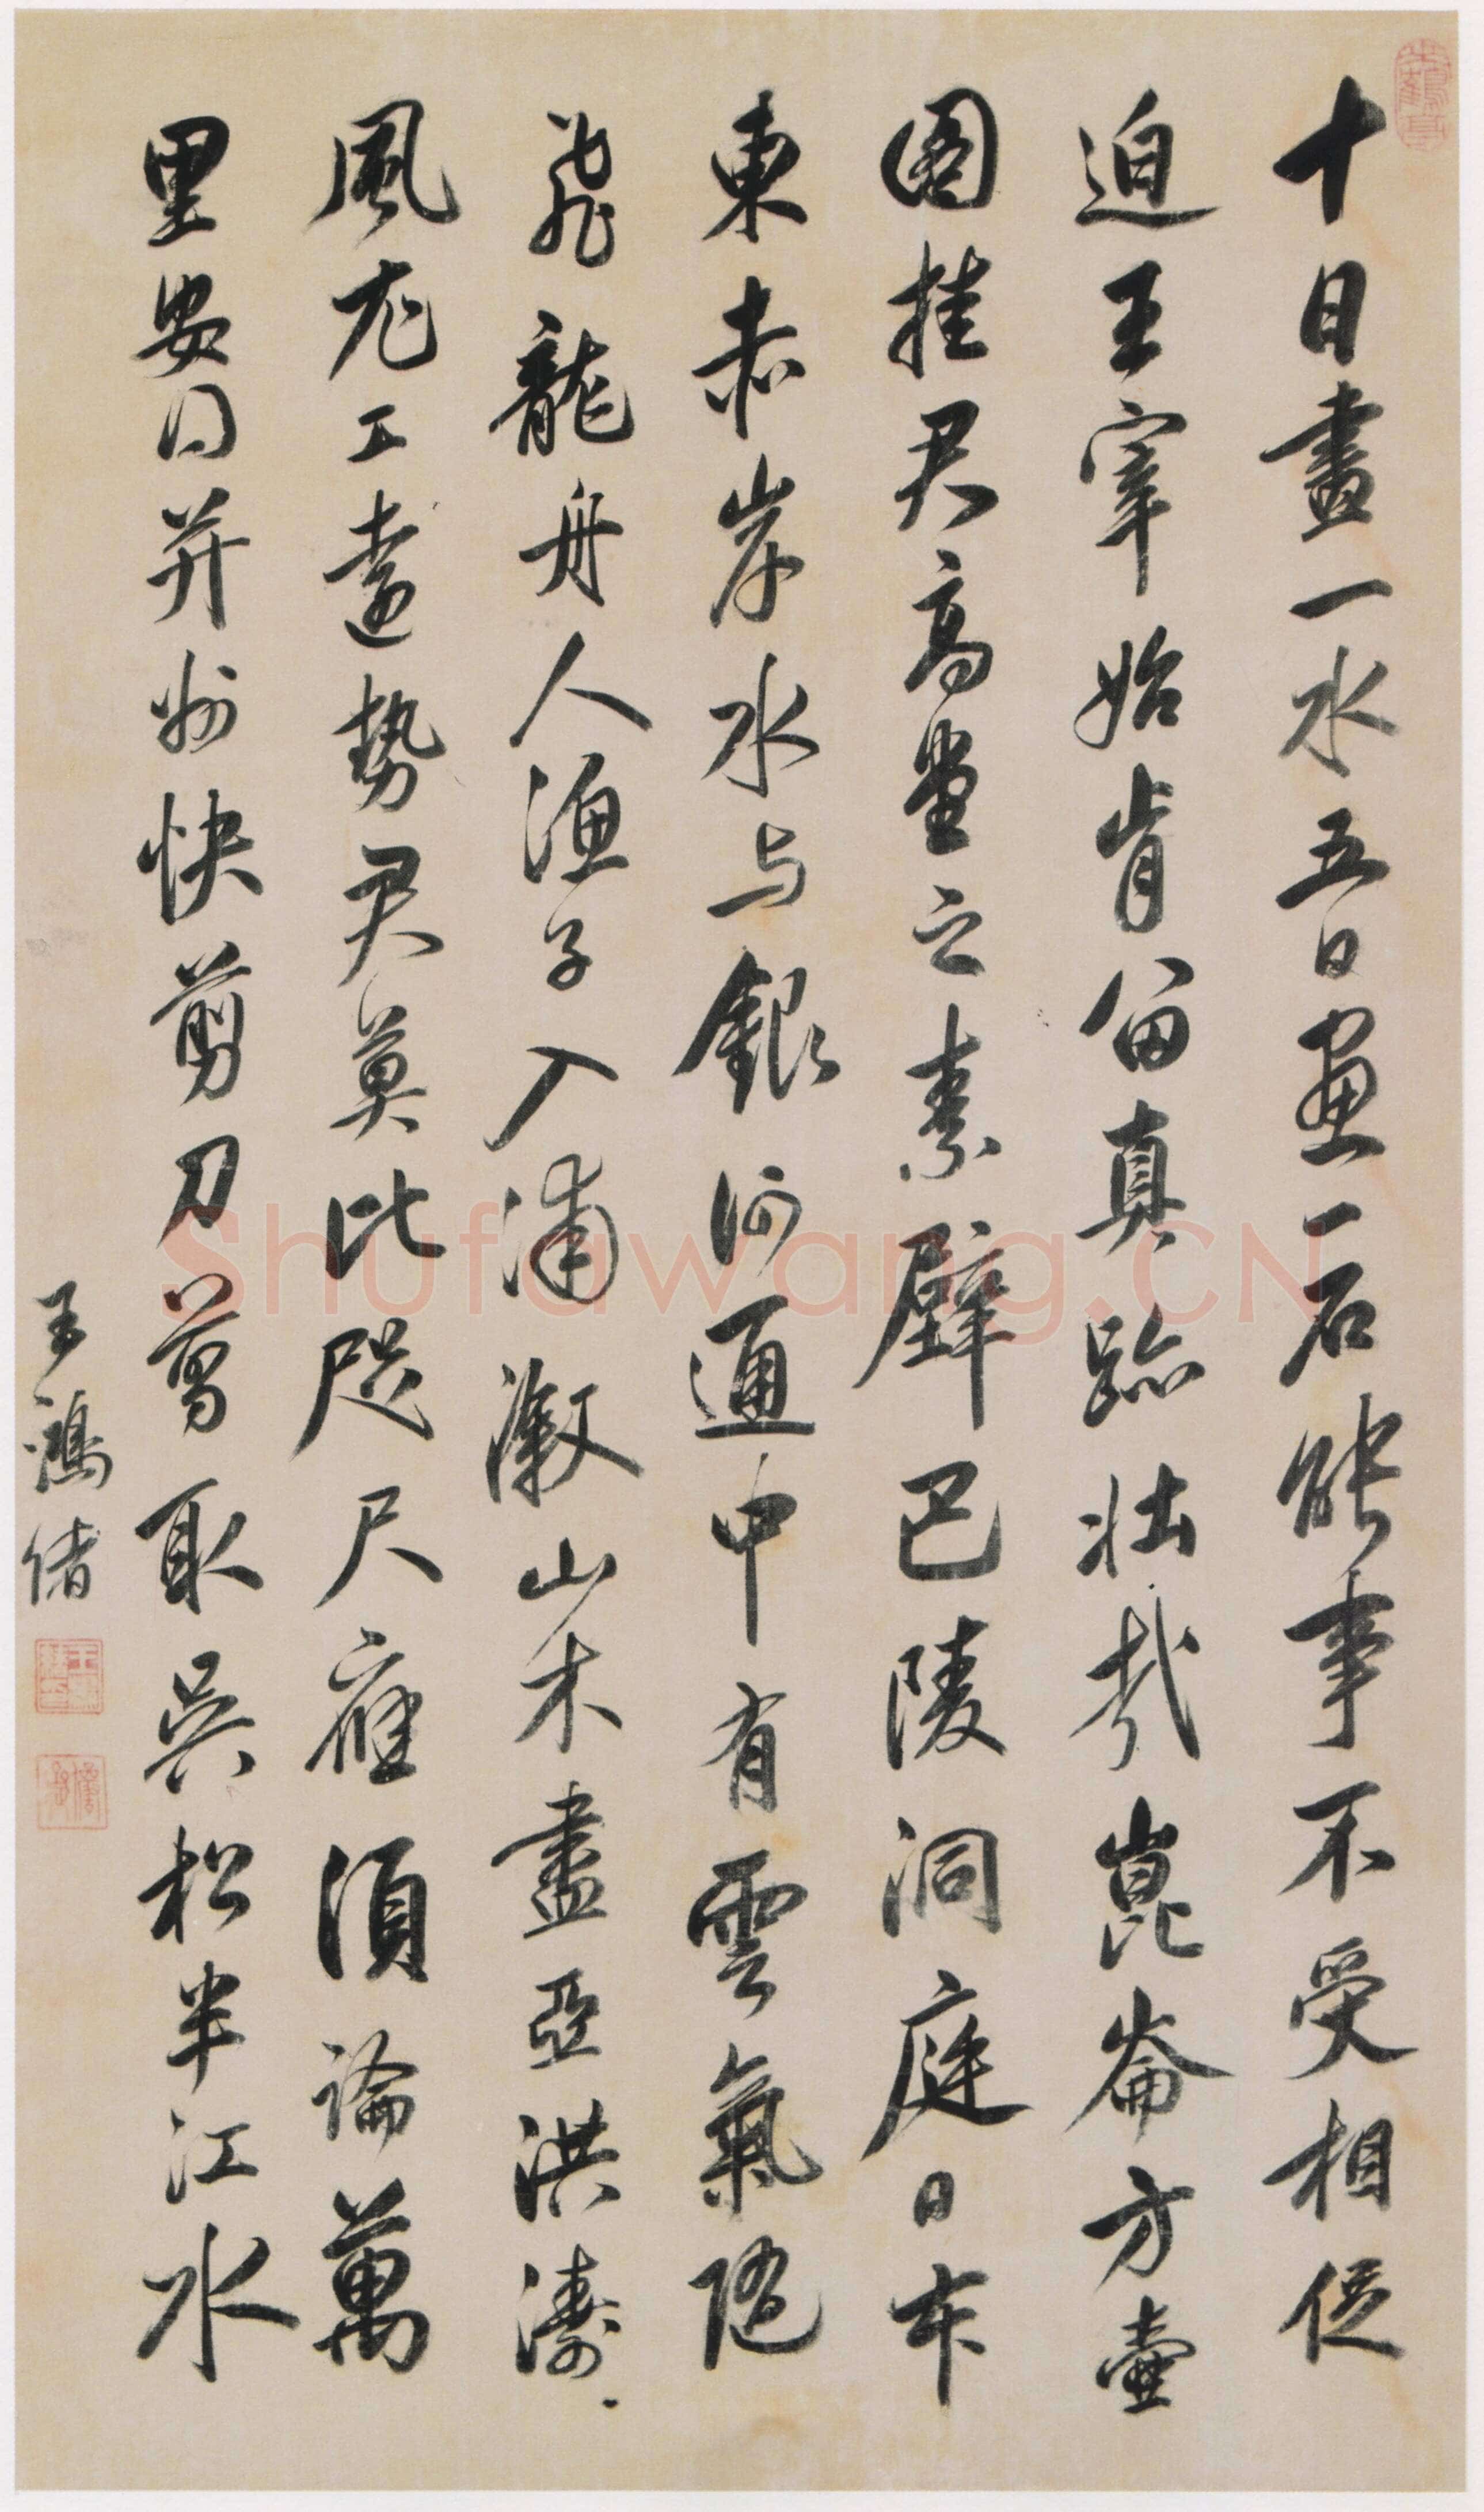 十日畫一水五日畫一石能事不受相促
迫王宰始肯留真跡壯哉崑崙方壺
圖挂君高堂之素壁巴陵洞庭日本
東赤岸水与銀河通中有雲氣隨
飛龍舟人漁子入浦溆山木盡亞洪濤
風尤工遠勢君莫比咫尺應須論萬
里安得并州快剪刀剪取吳松半江水
王鴻緒
Shufawang.CN